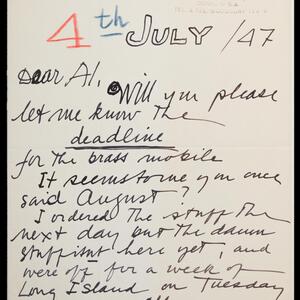 4th JULY /47
Dear Al, Will you please
let me know the
deadline
for the brass mobile
It seems to me you once
said August?
I ordered the stuff the
next day but the damn
stuff isnt here yet, and
were off for a week of
Long Island on Tuesday